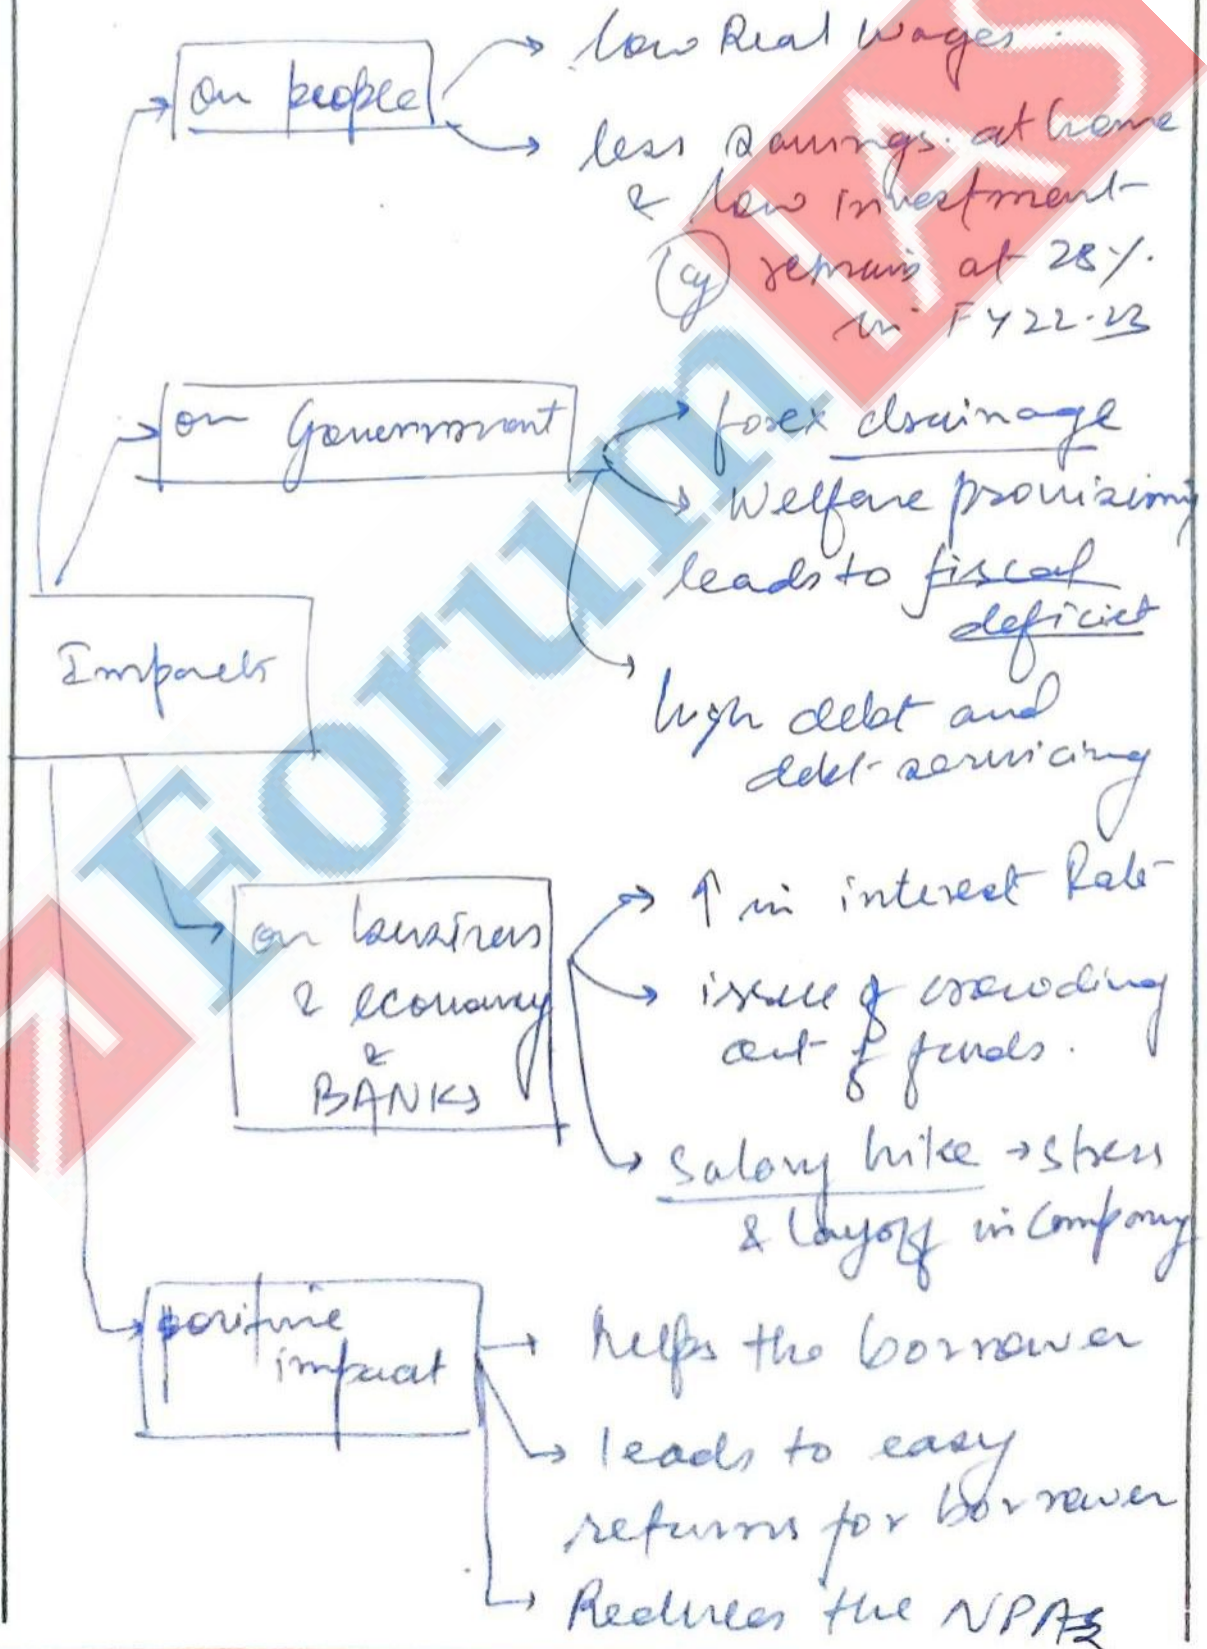 on people
low Real Wages.
less savings at home
& low investment
(eg) remains at 28%.
in FY22-23
on Government
forex drainage
Welfare provisioning
leads to fiscal
deficit
Impacts
high debt and
debt-servicing
on business
& economy
&
BANKS
↑ in interest Rate
issue of crowding
out of funds.
Salary hike → stress
& layoff in Company
positive
impact
helps the borrower
leads to easy
returns for borrower
Reduces the NPAs
Forum IAS